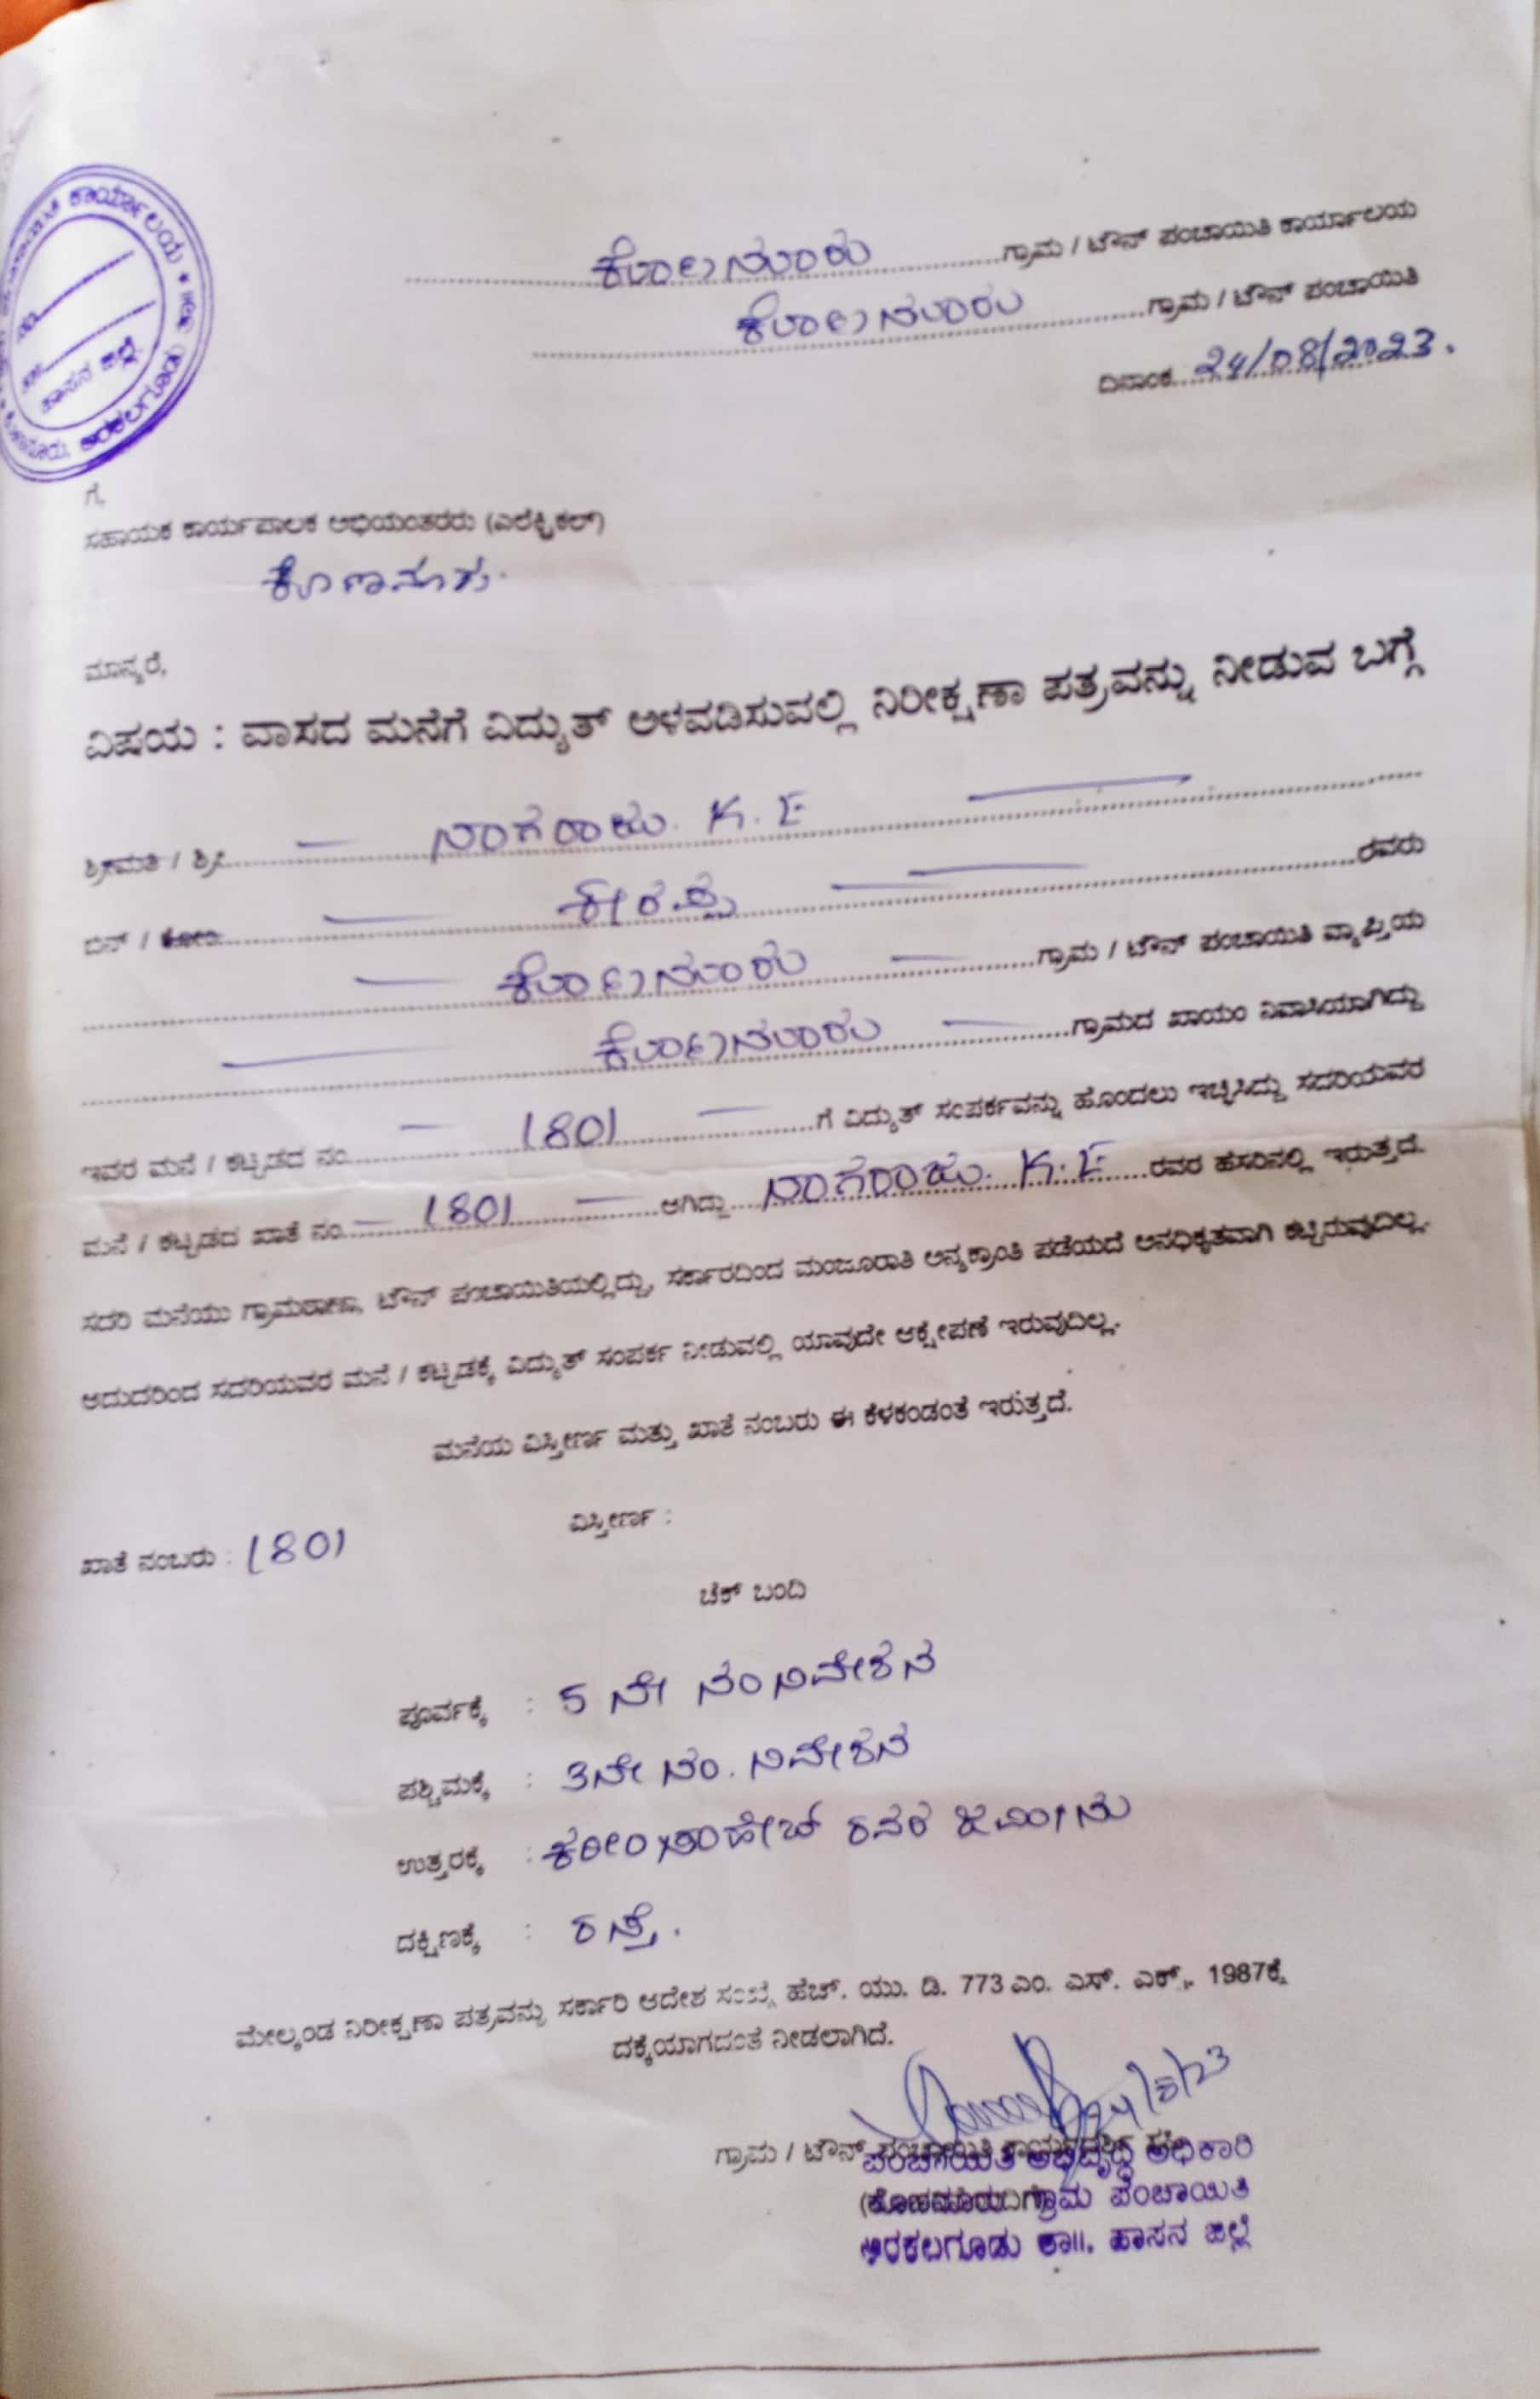 ಕಾರ್ಯಾಲಯ * ಅರಕಲಗೂಡು
ಹಾಸನ ಜಿಲ್ಲೆ
ಕೊಣನೂರು ಗ್ರಾಮ / ಟೌನ್ ಪಂಚಾಯಿತಿ ಕಾರ್ಯಾಲಯ
ಕೊಣನೂರು ಗ್ರಾಮ / ಟೌನ್ ಪಂಚಾಯಿತಿ
ದಿನಾಂಕ 24/08/2023.
ಗೆ,
ಸಹಾಯಕ ಕಾರ್ಯಪಾಲಕ ಅಭಿಯಂತರರು (ಎಲೆಕ್ಟ್ರಿಕಲ್)
ಕೊಣನೂರು.
ಮಾನ್ಯರೆ,
ವಿಷಯ : ವಾಸದ ಮನೆಗೆ ವಿದ್ಯುತ್ ಅಳವಡಿಸುವಲ್ಲಿ ನಿರೀಕ್ಷಣಾ ಪತ್ರವನ್ನು ನೀಡುವ ಬಗ್ಗೆ
ಶ್ರೀಮತಿ / ಶ್ರೀ — ನಾಗರಾಜು. K. E —
ಬಿನ್ / ಕೋಂ — ಈರಪ್ಪ — ರವರು
— ಕೊಣನೂರು — ಗ್ರಾಮ / ಟೌನ್ ಪಂಚಾಯಿತಿ ವ್ಯಾಪ್ತಿಯ
— ಕೊಣನೂರು — ಗ್ರಾಮದ ಖಾಯಂ ನಿವಾಸಿಯಾಗಿದ್ದು
ಇವರ ಮನೆ / ಕಟ್ಟಡದ ನಂ — 1801 — ಗೆ ವಿದ್ಯುತ್ ಸಂಪರ್ಕವನ್ನು ಹೊಂದಲು ಇಚ್ಛಿಸಿದ್ದು ಸದರಿಯವರ
ಮನೆ / ಕಟ್ಟಡದ ಖಾತೆ ನಂ. — 1801 — ಆಗಿದ್ದು ನಾಗರಾಜು. K. E ರವರ ಹೆಸರಿನಲ್ಲಿ ಇರುತ್ತದೆ.
ಸದರಿ ಮನೆಯು ಗ್ರಾಮಠಾಣಾ, ಟೌನ್ ಪಂಚಾಯಿತಿಯಲ್ಲಿದ್ದು, ಸರ್ಕಾರದಿಂದ ಮಂಜೂರಾತಿ ಅನ್ಯಕ್ರಾಂತಿ ಪಡೆಯದೆ ಅನಧಿಕೃತವಾಗಿ ಕಟ್ಟಿರುವುದಿಲ್ಲ.
ಆದುದರಿಂದ ಸದರಿಯವರ ಮನೆ / ಕಟ್ಟಡಕ್ಕೆ ವಿದ್ಯುತ್ ಸಂಪರ್ಕ ನೀಡುವಲ್ಲಿ ಯಾವುದೇ ಆಕ್ಷೇಪಣೆ ಇರುವುದಿಲ್ಲ.
ಮನೆಯ ವಿಸ್ತೀರ್ಣ ಮತ್ತು ಖಾತೆ ನಂಬರು ಈ ಕೆಳಕಂಡಂತೆ ಇರುತ್ತದೆ.
ಖಾತೆ ನಂಬರು : 1801 ವಿಸ್ತೀರ್ಣ :
ಚೆಕ್ ಬಂದಿ
ಪೂರ್ವಕ್ಕೆ : 5 ನೇ ನಂ ನಿವೇಶನ
ಪಶ್ಚಿಮಕ್ಕೆ : 3ನೇ ನಂ. ನಿವೇಶನ
ಉತ್ತರಕ್ಕೆ : ಕರೀಂಸಾಹೇಬ್ ರವರ ಜಮೀನು
ದಕ್ಷಿಣಕ್ಕೆ : ರಸ್ತೆ.
ಮೇಲ್ಕಂಡ ನಿರೀಕ್ಷಣಾ ಪತ್ರವನ್ನು ಸರ್ಕಾರಿ ಆದೇಶ ಸಂಖ್ಯೆ ಹೆಚ್. ಯು. ಡಿ. 773 ಎಂ. ಎಸ್. ಎಕ್ಸ್. 1987ಕ್ಕೆ
ದಕ್ಕೆಯಾಗದಂತೆ ನೀಡಲಾಗಿದೆ.
24/8/23
ಗ್ರಾಮ / ಟೌನ್ ಪಂಚಾಯಿತಿ ಕಾರ್ಯದರ್ಶಿ ಸಹಿ
ಪಂಚಾಯಿತಿ ಅಭಿವೃದ್ಧಿ ಅಧಿಕಾರಿ
ಕೊಣನೂರು ಗ್ರಾಮ ಪಂಚಾಯಿತಿ
ಅರಕಲಗೂಡು ತಾ॥, ಹಾಸನ ಜಿಲ್ಲೆ